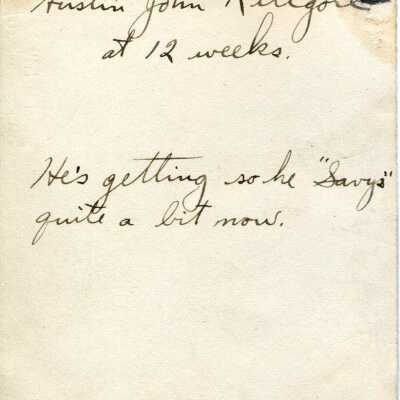 Austin John Kilgore
at 12 weeks.
He's getting so he "Savys"
quite a bit now.